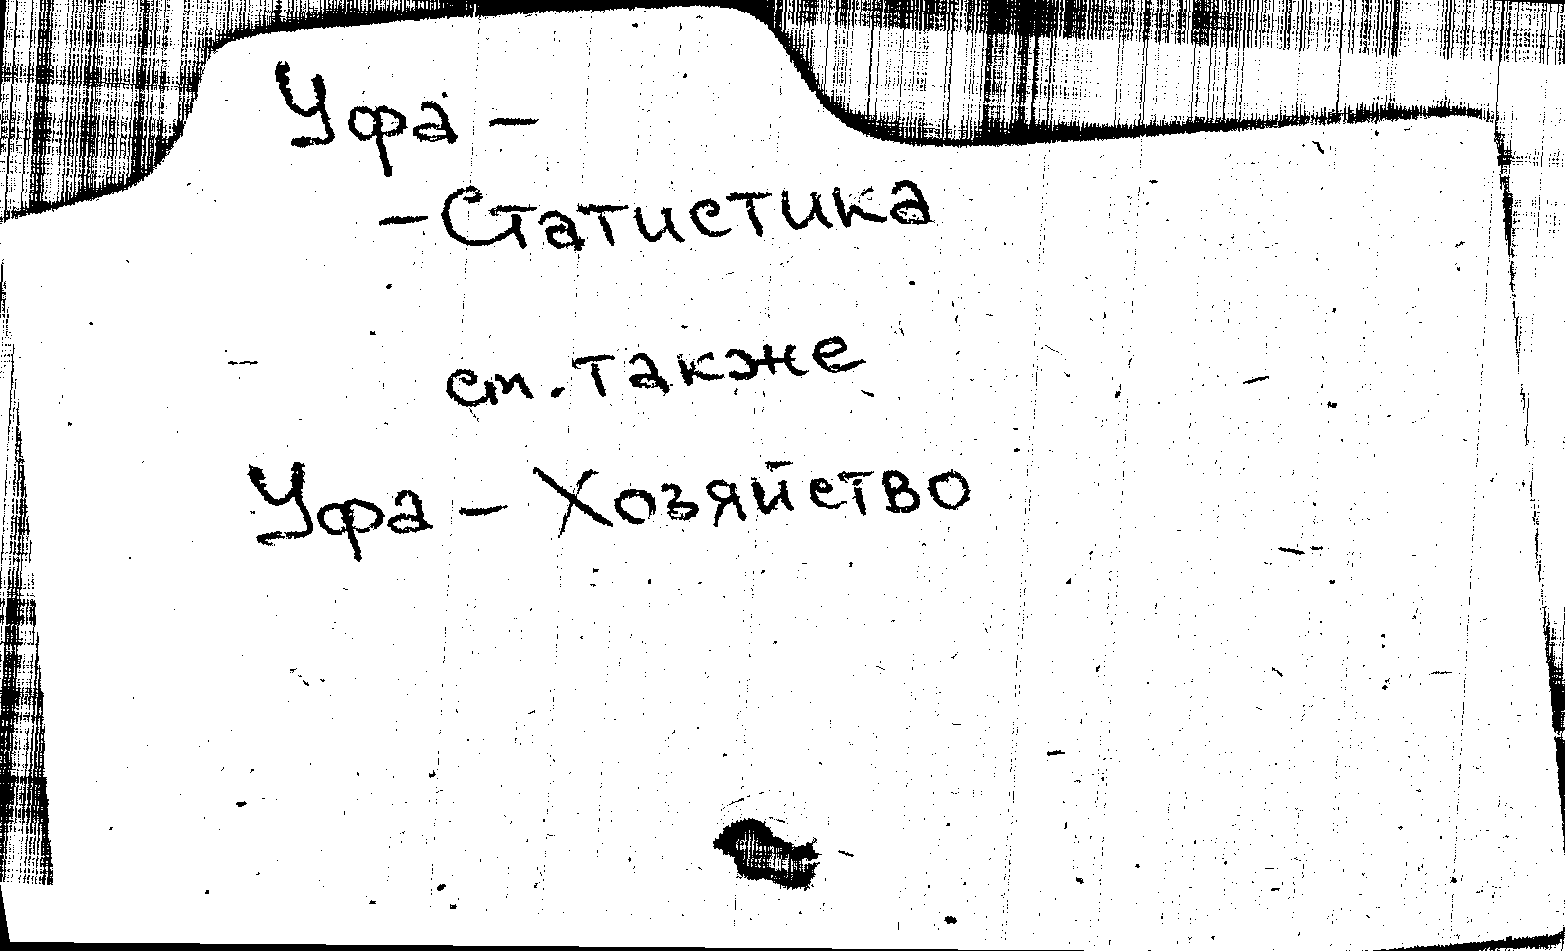 Уфа –
– Статистика
см. также
Уфа – Хозяйство